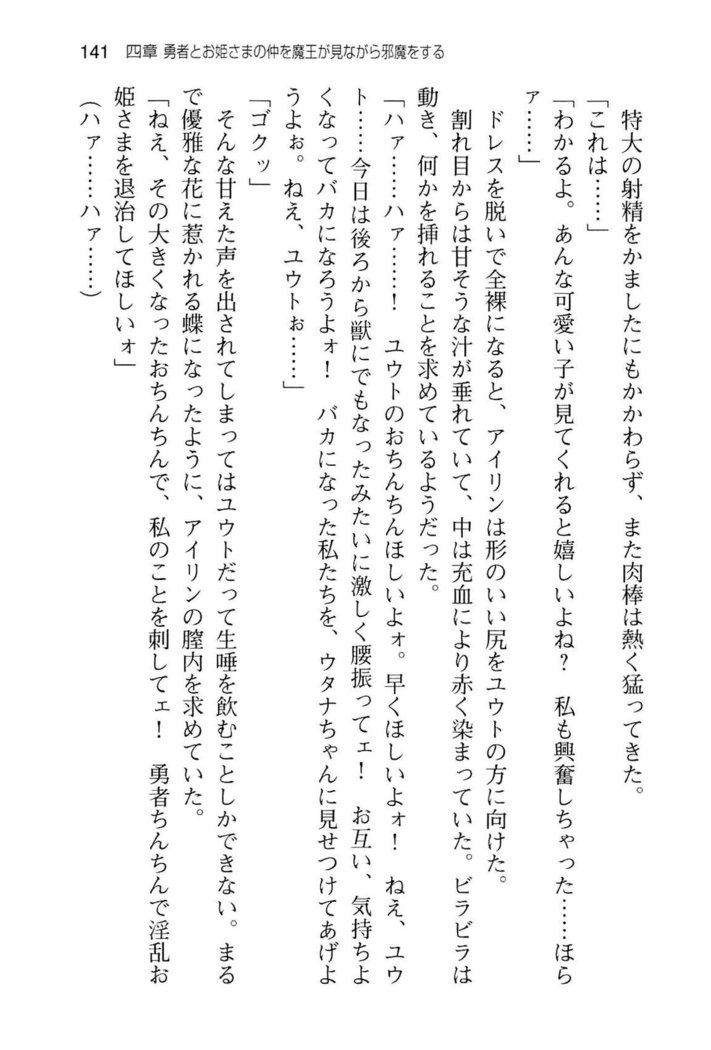 141　四章 勇者とお姫さまの仲を魔王が見ながら邪魔をする
特大の射精をかましたにもかかわらず、また肉棒は熱く猛ってきた。
「これは……」
「わかるよ。あんな可愛い子が見てくれると嬉しいよね？　私も興奮しちゃった……ほら
ァ……」
ドレスを脱いで全裸になると、アイリンは形のいい尻をユウトの方に向けた。
割れ目からは甘そうな汁が垂れていて、中は充血により赤く染まっていた。ビラビラは
動き、何かを挿れることを求めているようだった。
「ハァ……ハァ……！　ユウトのおちんちんほしいよォ。早くほしいよォ！　ねえ、ユウ
ト……今日は後ろから獣にでもなったみたいに激しく腰振ってェ！　お互い、気持ちよ
くなってバカになろうよォ！　バカになった私たちを、ウタナちゃんに見せつけてあげよ
うよぉ。ねえ、ユウトぉ……」
「ゴクッ」
そんな甘えた声を出されてしまってはユウトだって生唾を飲むことしかできない。まる
で優雅な花に惹かれる蝶になったように、アイリンの膣内を求めていた。
「ねえ、その大きくなったおちんちんで、私のことを刺してェ！　勇者ちんちんで淫乱お
姫さまを退治してほしいォ」
（ハァ……ハァ……）